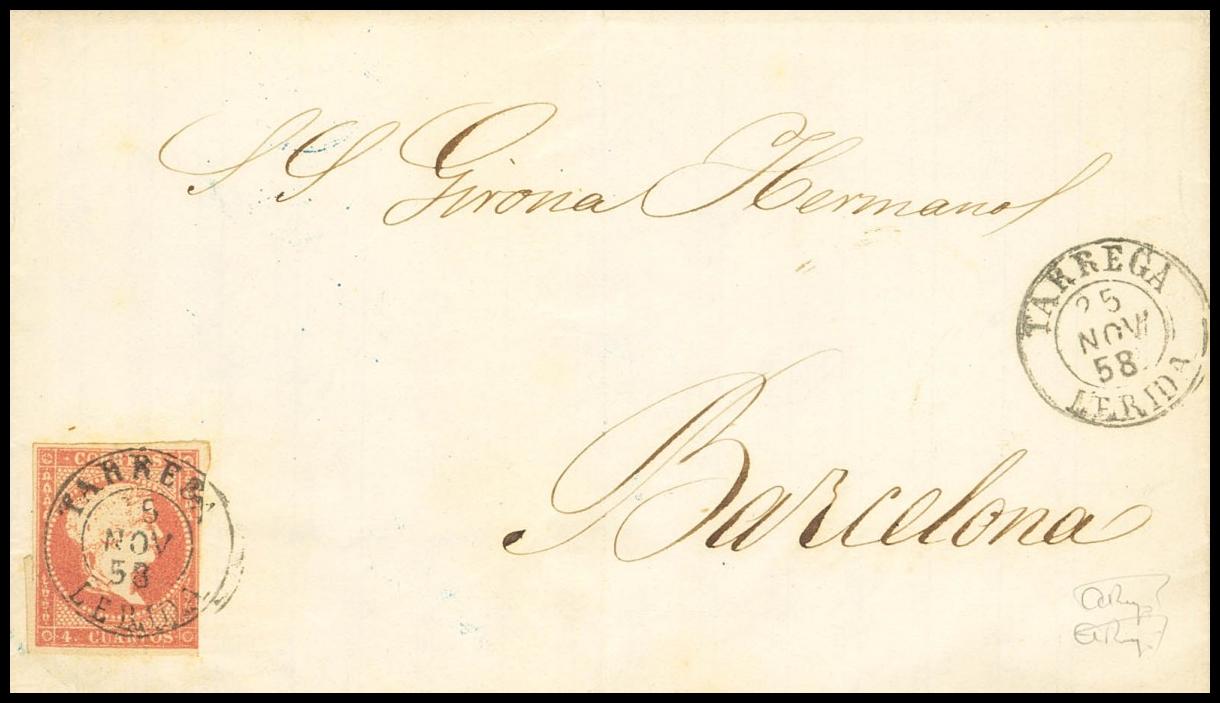 SS Girona Hermanos
TARREGA
25
NOV
58
LERIDA
Barcelona
CORREOS
TARREGA
5
NOV
58
LERIDA
4. CUARTOS